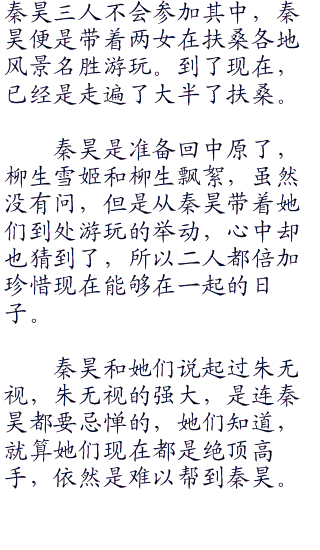 秦昊三人不会参加其中，秦
昊便是带着两女在扶桑各地
风景名胜游玩。到了现在，
已经是走遍了大半了扶桑。
秦昊是准备回中原了，
柳生雪姬和柳生飘絮，虽然
没有问，但是从秦昊带着她
们到处游玩的举动，心中却
也猜到了，所以二人都倍加
珍惜现在能够在一起的日
子。
秦昊和她们说起过朱无
视，朱无视的强大，是连秦
昊都要忌惮的，她们知道，
就算她们现在都是绝顶高
手，依然是难以帮到秦昊。